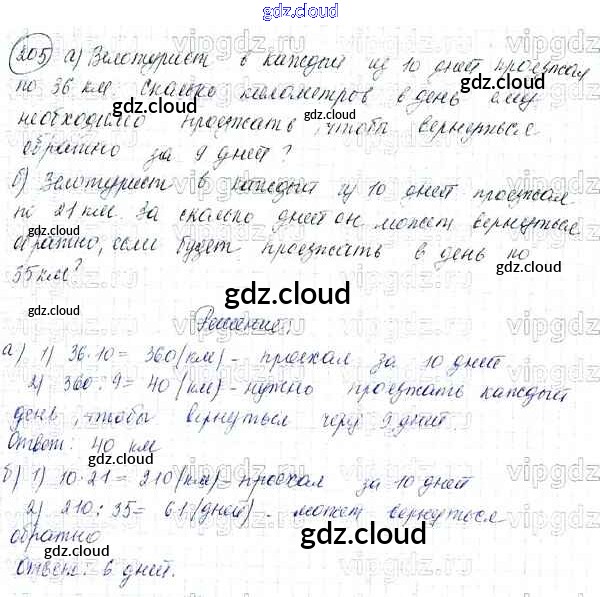 gdz.cloud
205 а) Велотурист в каждый из 10 дней проезжал
по 36 км. Сколько километров в день ему
необходимо проезжать, чтобы вернуться
обратно за 9 дней?
б) Велотурист в каждый из 10 дней проезжал
по 21 км. За сколько дней он может вернуться
обратно, если будет проезжать в день по
35 км?
gdz.cloud
Решение:
а) 1) 36·10= 360(км) - проехал за 10 дней
2) 360:9=40(км)-нужно проезжать каждый
день, чтобы вернуться через 9 дней.
Ответ: 40 км
б) 1) 10·21=210(км)-проехал за 10 дней
2) 210:35= 6(дней) - может вернуться
обратно
Ответ: 6 дней.